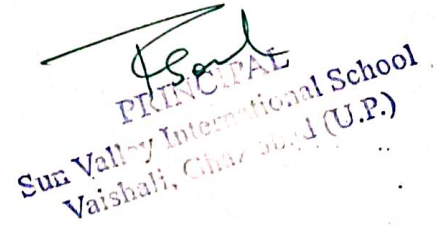 PRINCIPAL
Sun Valley International School
Vaishali, Ghaziabad (U.P.)